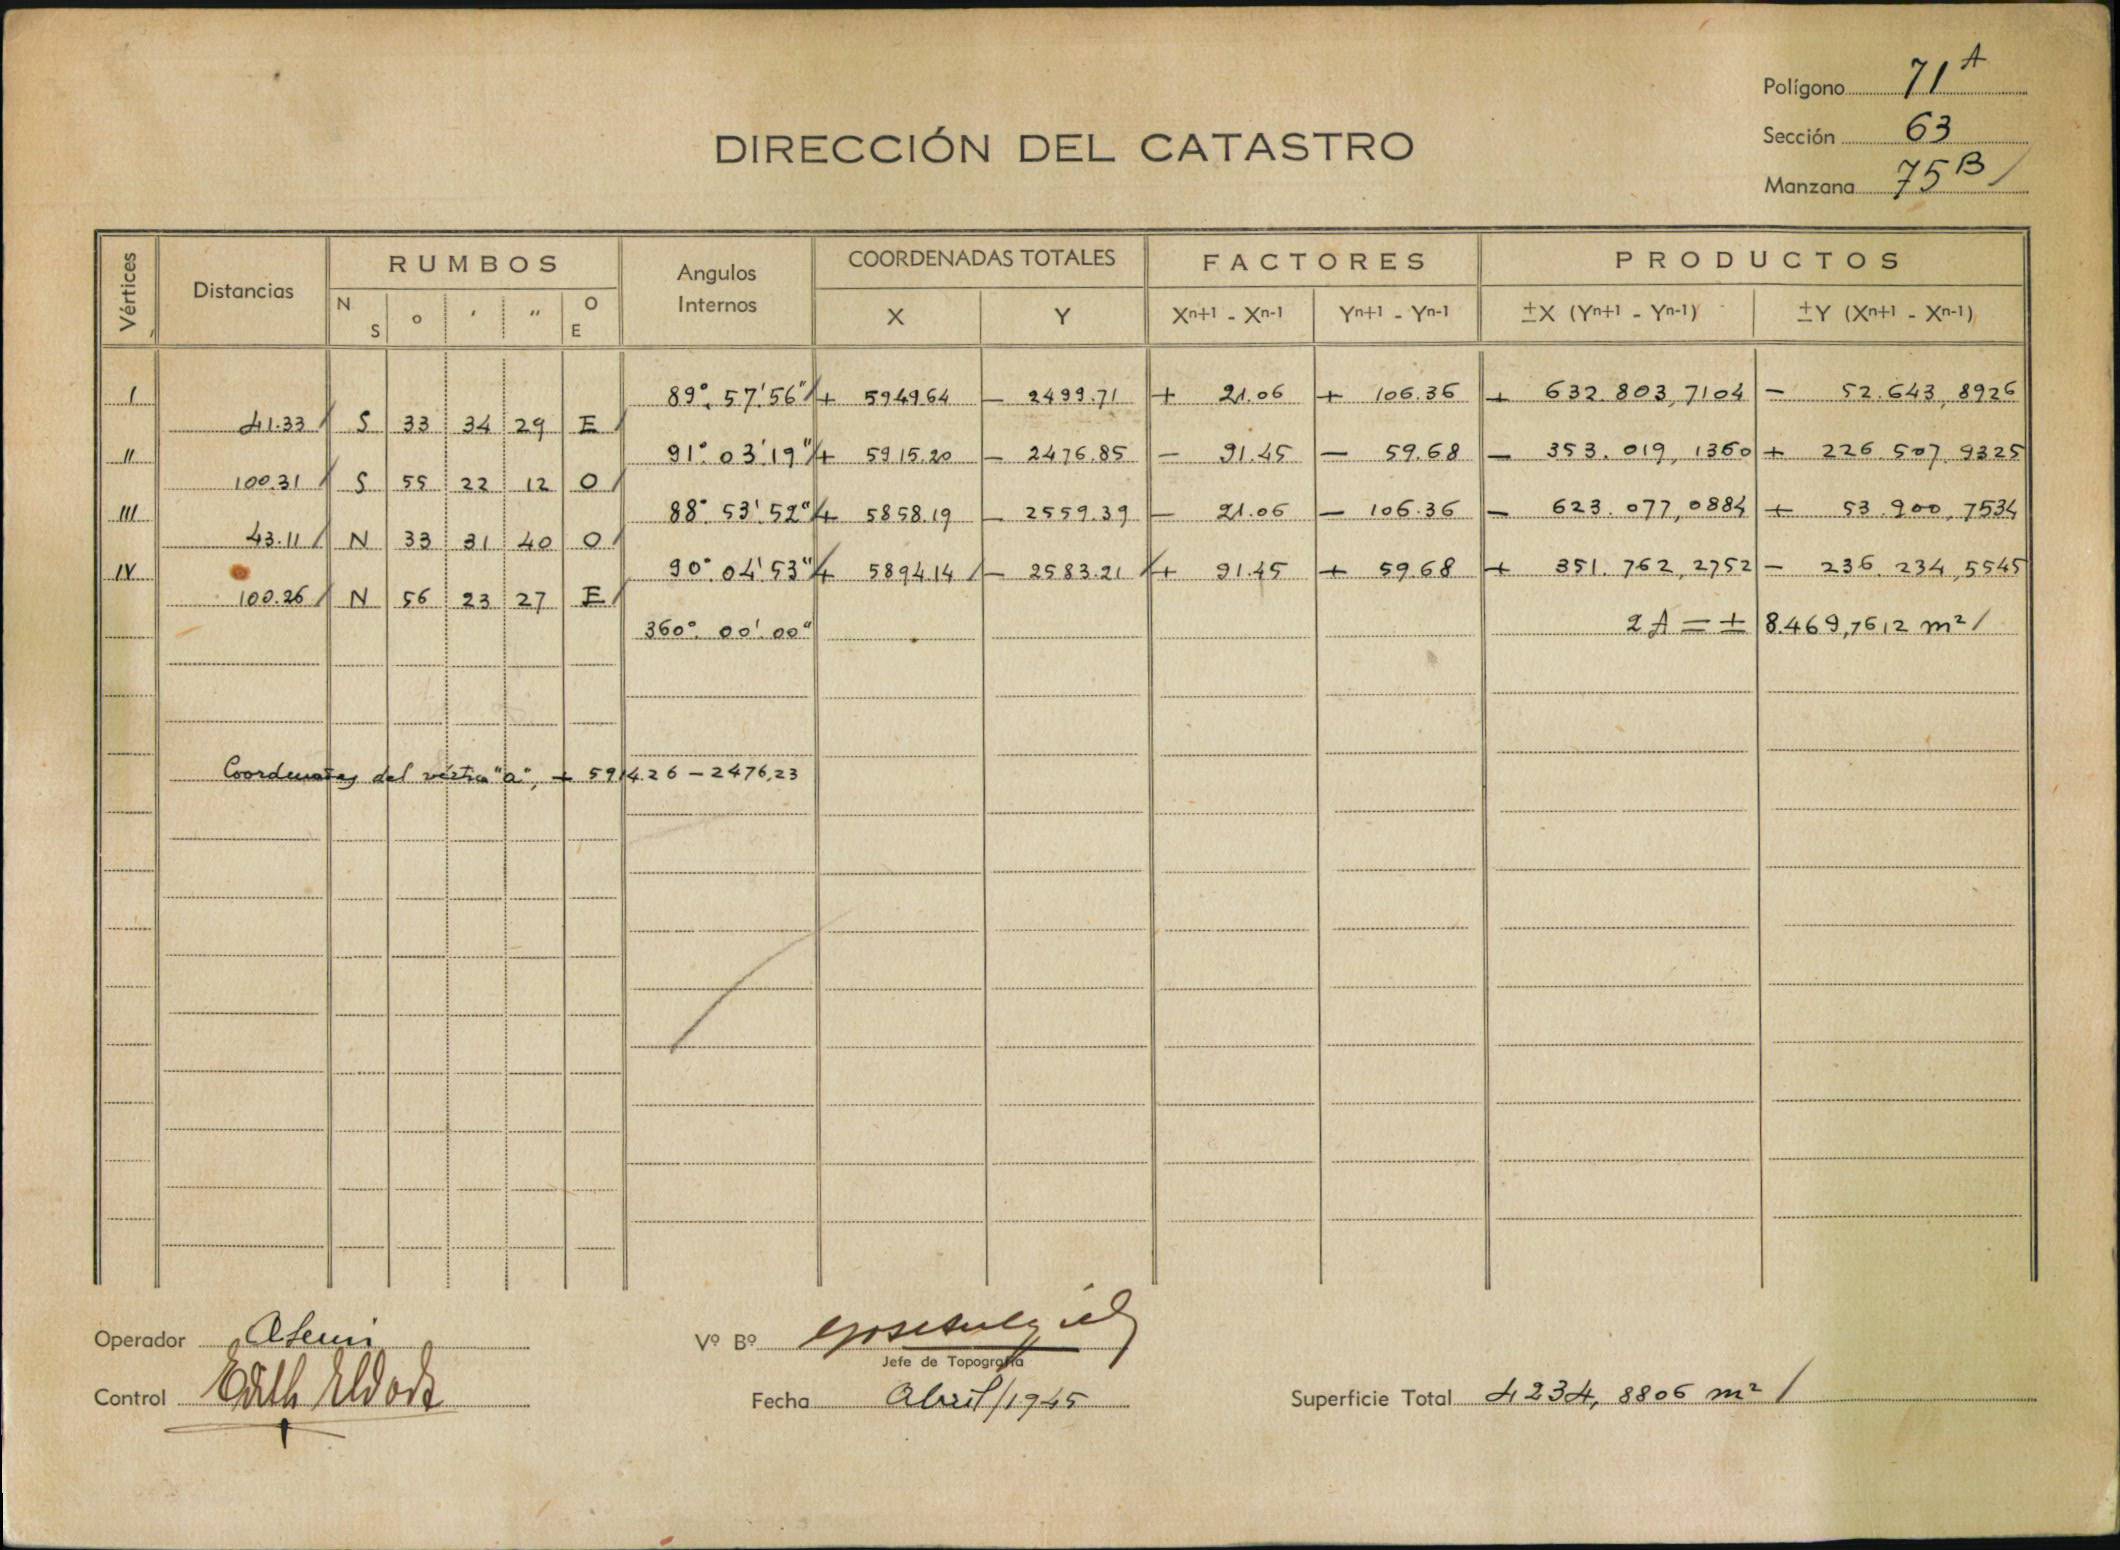 Polígono 71 A
Sección 63
Manzana 75 B /
DIRECCIÓN DEL CATASTRO
Vértices Distancias RUMBOS Angulos Internos COORDENADAS TOTALES FACTORES PRODUCTOS
N S ° ' " O E X Y Xn+1 - Xn-1 Yn+1 - Yn-1 ±X (Yn+1 - Yn-1) ±Y (Xn+1 - Xn-1)
I 89°. 57'. 56" / + 5949.64 — 2499.71 + 21.06 + 106.36 + 632.803,7104 — 52.643,8926
41.33 / S 33 34 29 E /
II 91°. 03'. 19" / + 5915.20 — 2476.85 — 91.45 — 59.68 — 353.019,1360 + 226.507.9325
100.31 / S 55 22 12 O /
III 88°. 53'. 52" / + 5858.19 — 2559.39 — 21.06 — 106.36 — 623.077,0884 + 53.900,7534
43.11 / N 33 31 40 O /
IV 90°. 04' 53" / + 5894.14 / — 2583.21 / + 91.45 + 59.68 + 351.762,2752 — 236.234,5545
100.26 / N 56 23 27 E /
360°. 00'. 00" 2A = ± 8.469,7612 m² /
Coordenadas del vértice "a", + 5914.26 — 2476,23
Operador
Vº Bº
Jefe de Topografía
Control
Fecha Abril/1945
Superficie Total 4234,8806 m² /